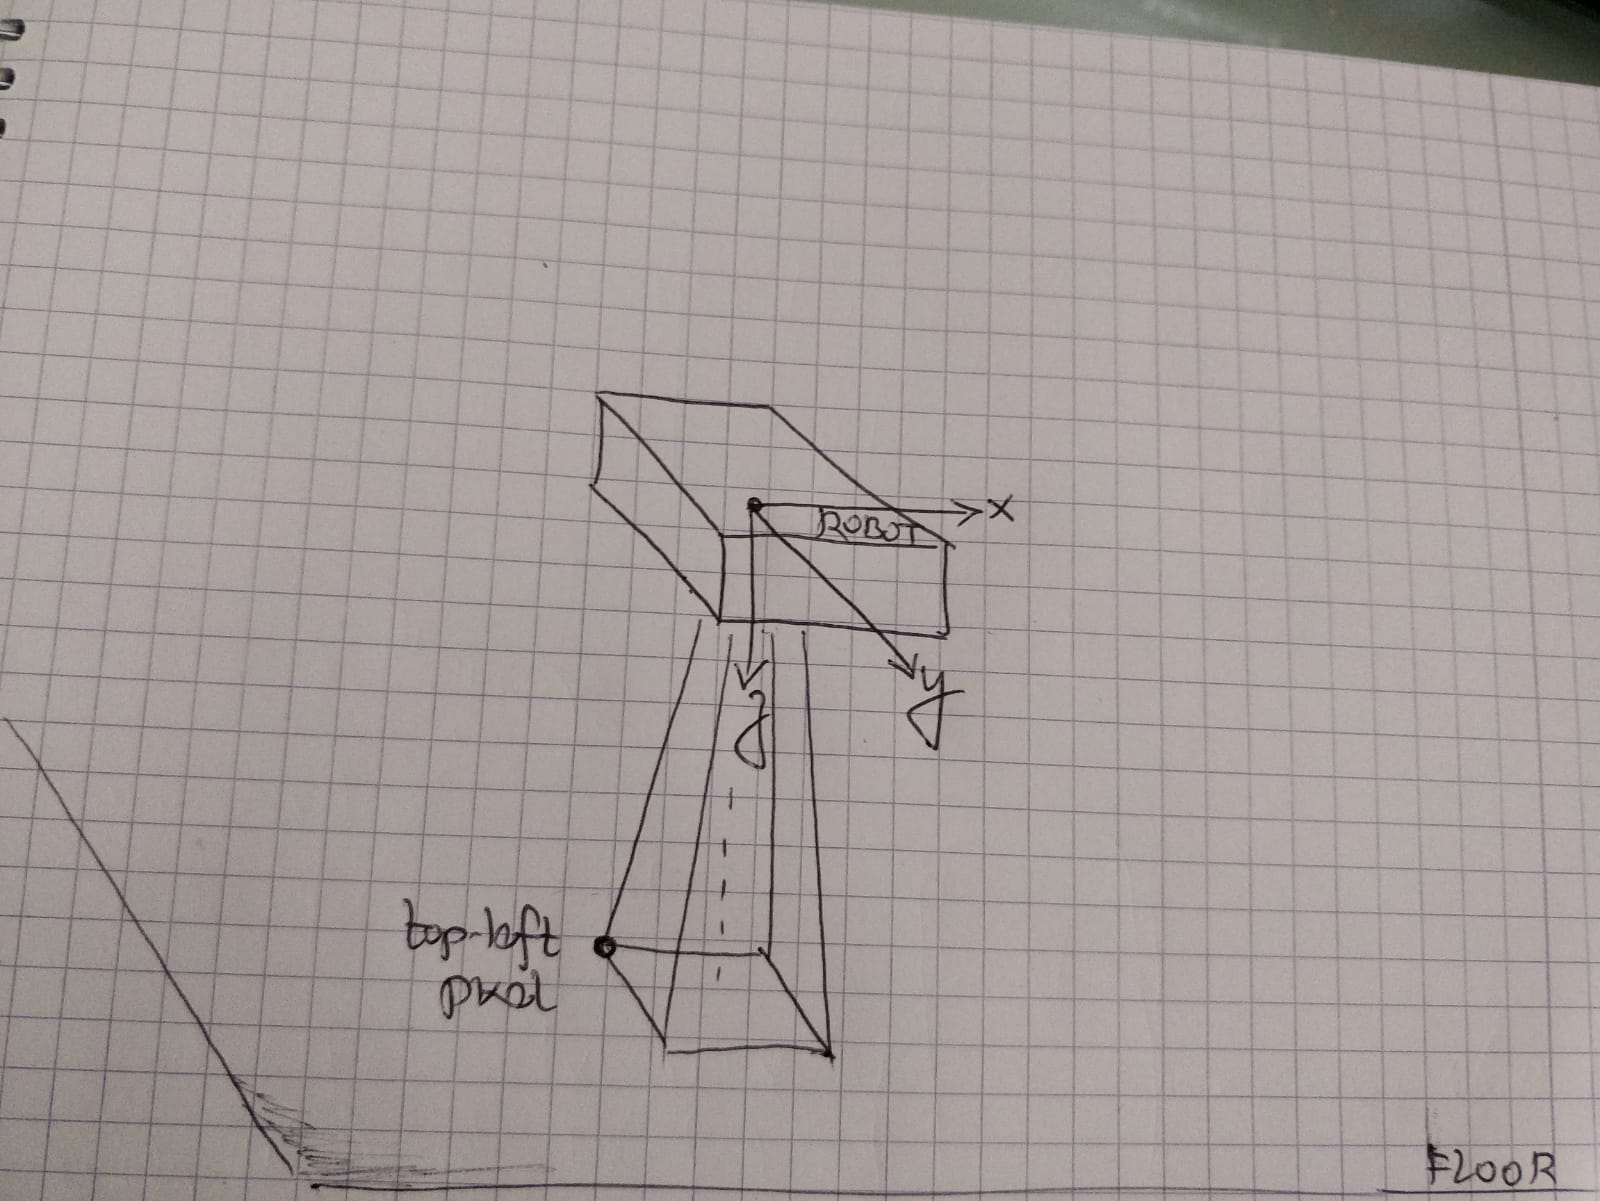 x
ROBOT
y
z
top-left
pixel
FLOOR